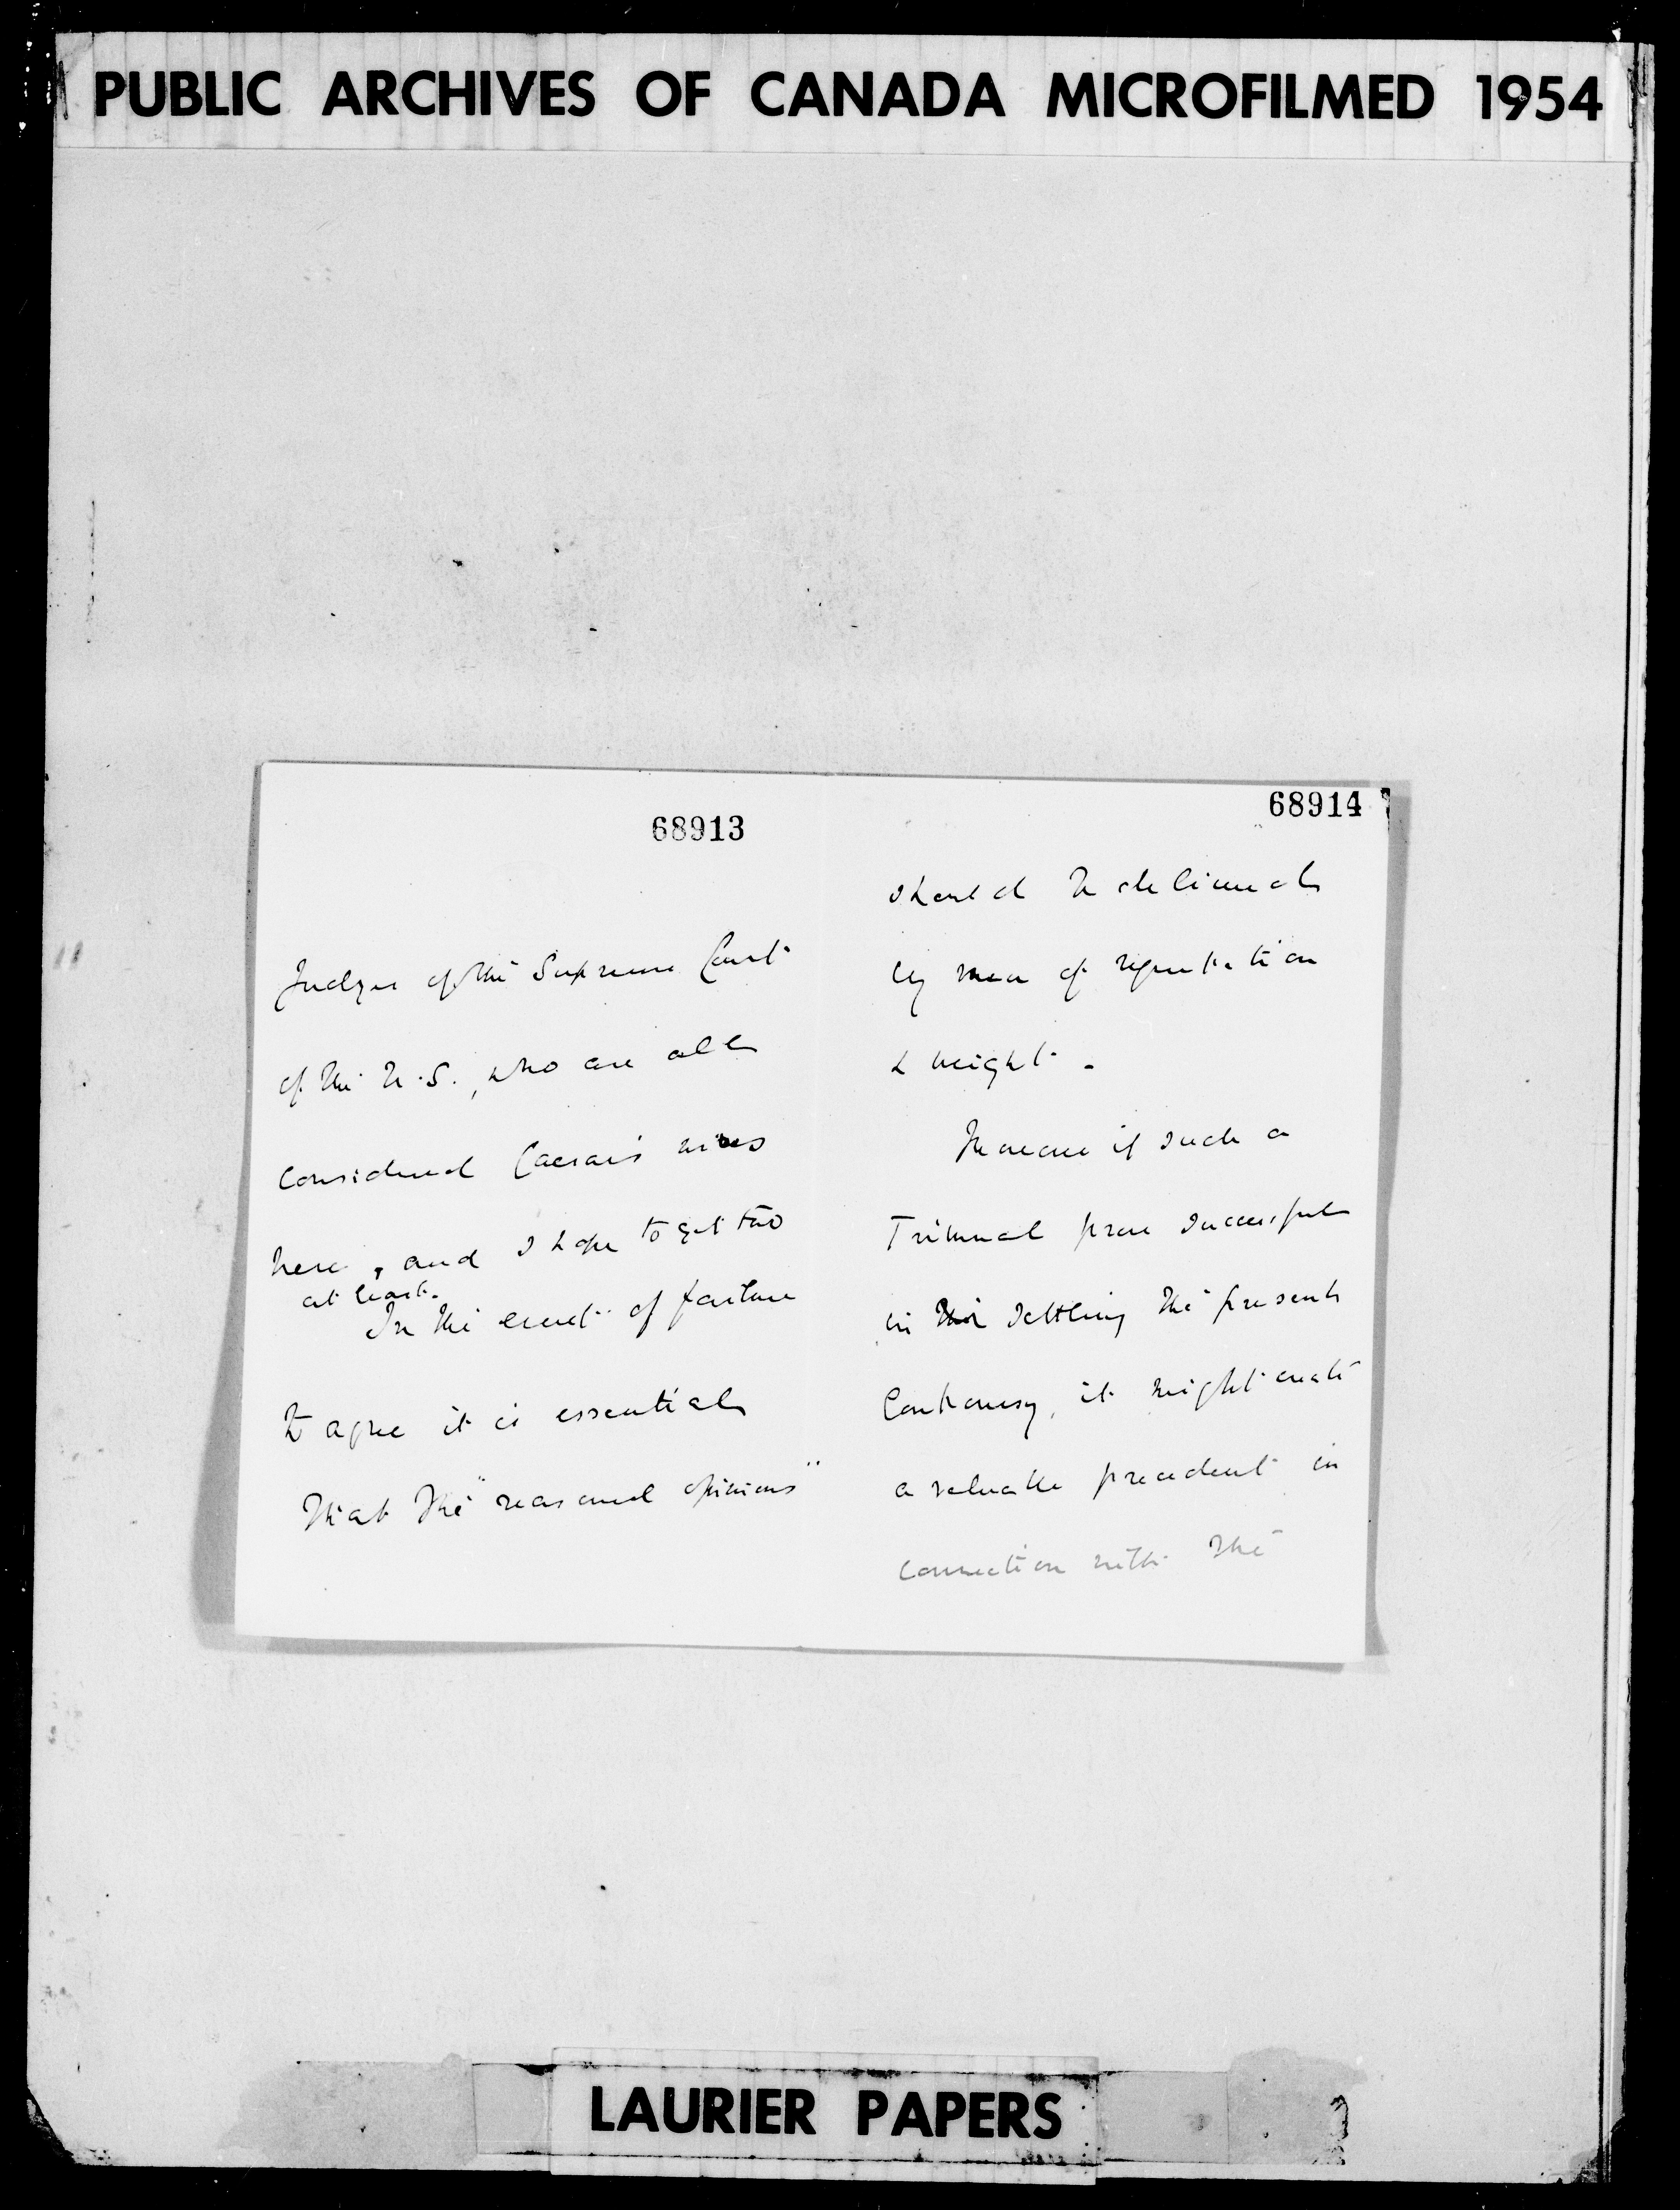 PUBLIC ARCHIVES OF CANADA MICROFILMED 1954
68913
Judges of the Supreme Court
of the U.S., who are all
considered Caesar's wives
here, and I hope to get two
at least.
In the event of failure
to agree it is essential
that the "reasoned opinions"
68914
should be delivered
by men of reputation
& weight.
Moreover if such a
Tribunal prove successful
in settling the present
Controversy, it might create
a valuable precedent in
connection with the
LAURIER PAPERS